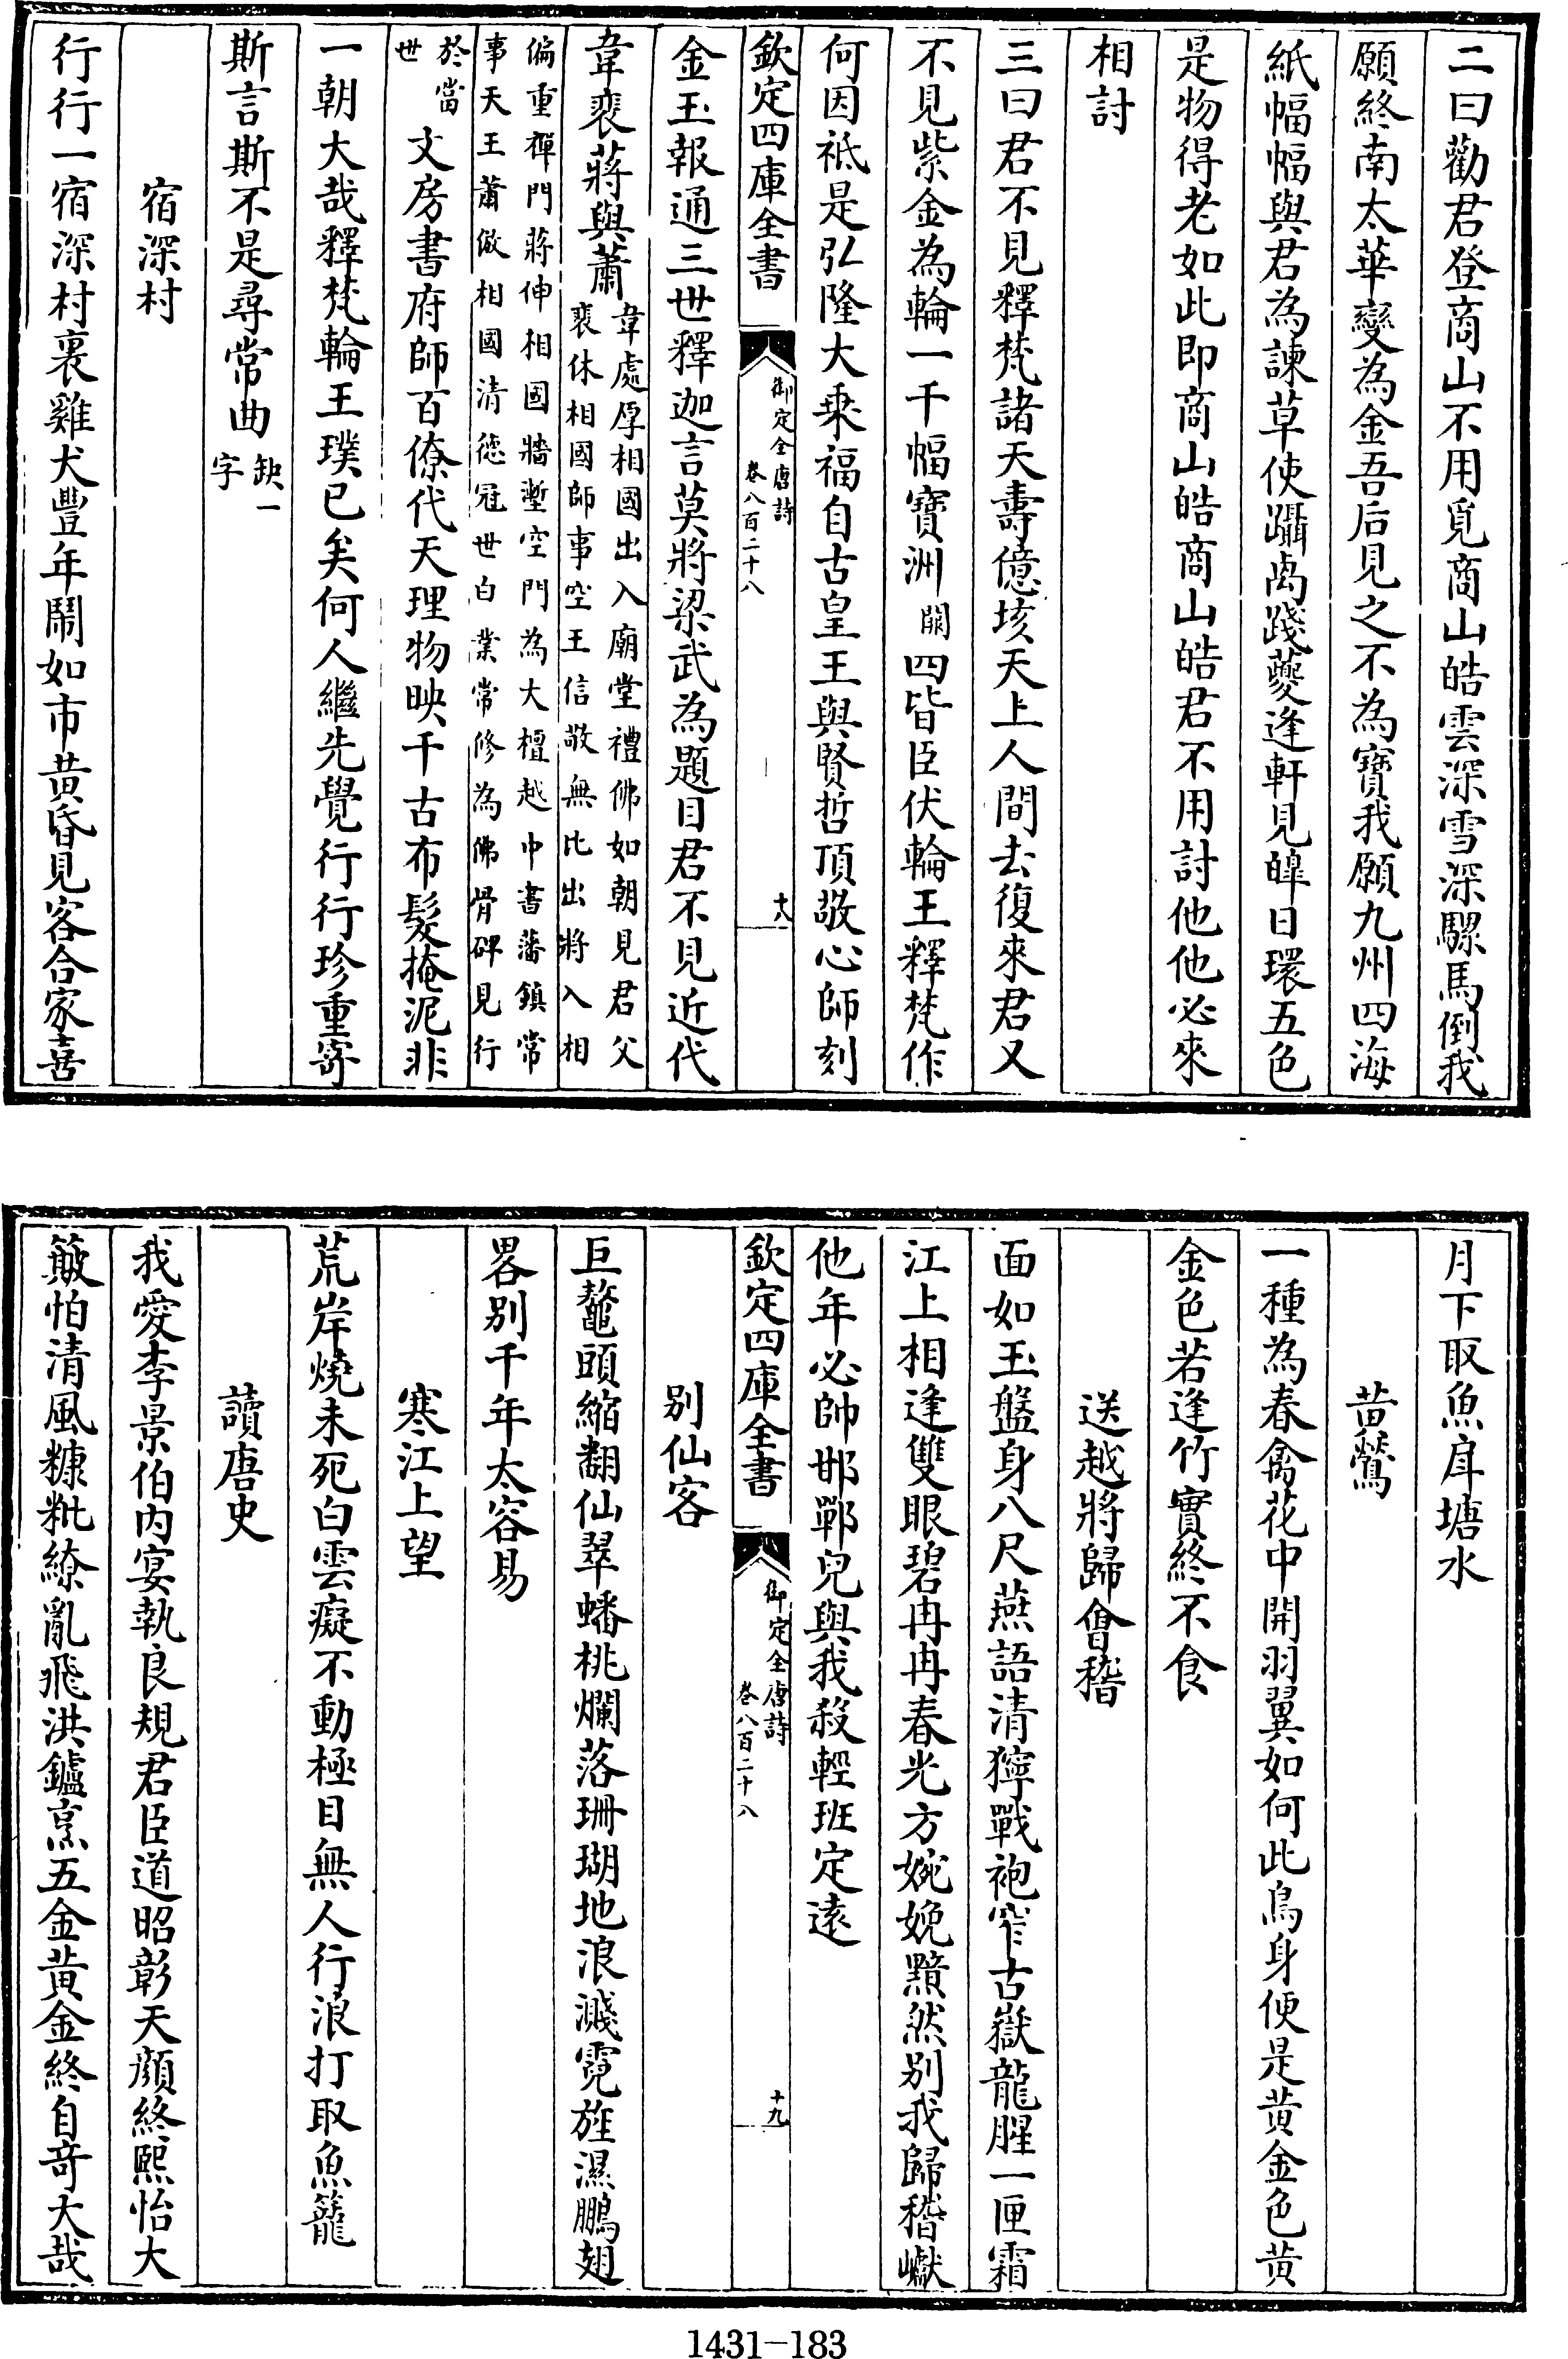 二曰勸君登商山不用覓商山皓雲深雪深騾馬倒我
願終南太華變為金吾后見之不為寶我願九州四海
紙幅幅與君為諫草使躡卨踐夔逢軒見皥日環五色
是物得老如此即商山皓商山皓君不用討他他必來
相討
三曰君不見釋梵諸天壽億垓天上人間去復來君又
不見紫金為輪一千幅寶洲闕四皆臣伏輪王釋梵作
何因祇是弘隆大乘福自古皇王與賢哲頂敬心師刻
欽定四庫全書
御定全唐詩
卷八百二十八
十八
金玉報通三世釋迦言莫將梁武為題目君不見近代
韋裴蔣與蕭
韋處厚相國出入廟堂禮佛如朝見君父
裴休相國師事空王信敬無比出將入相
偏重禪門蔣伸相國牆壍空門為大檀越中書藩鎮常
事天王蕭倣相國清德冠世白業常修為佛骨碑見行
於當
世
文房書府師百僚代天理物映千古布髮掩泥非
一朝大哉釋梵輪王璞已矣何人繼先覺行行珍重寄
斯言斯不是尋常曲
缺一
字
宿深村
行行一宿深村裏雞犬豐年鬧如市黃昏見客合家喜
月下取魚戽塘水
苗鶯
一種為春禽花中開羽翼如何此鳥身便是黃金色黃
金色若逢竹實終不食
送越將歸會稽
面如玉盤身八尺燕語清獰戰袍窄古嶽龍腥一匣霜
江上相逢雙眼碧冉冉春光方婉娩黯然別我歸稽巘
他年必帥邯鄲兒與我殺輕班定遠
欽定四庫全書
御定全唐詩
卷八百二十八
十九
別仙客
巨鼇頭縮翻仙翠蟠桃爛落珊瑚地浪濺霓旌濕鵬翅
畧別千年太容易
寒江上望
荒岸燒未死白雲癡不動極目無人行浪打取魚籠
讀唐史
我愛李景伯內宴執良規君臣道昭彰天顏終熙怡大
簸怕清風糠粃繚亂飛洪鑪烹五金黃金終自奇大哉
1431-183